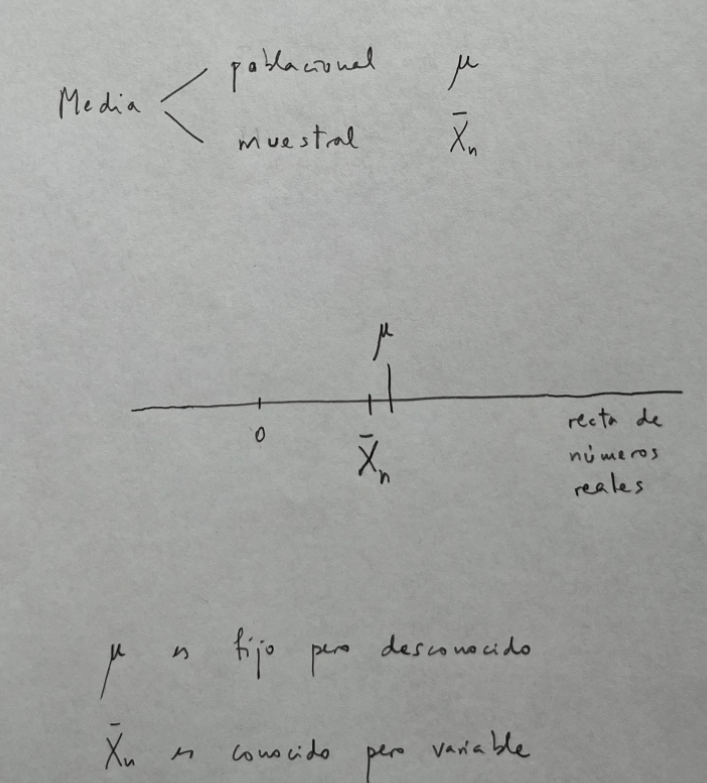 Media
poblacional μ
muestral X̄ₙ
μ
0
X̄ₙ
recta de
números
reales
μ es fijo pero desconocido
X̄ₙ es conocido pero variable